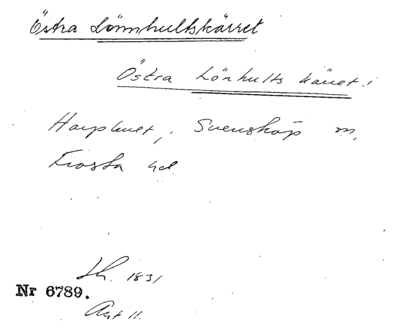 Östra Lönnhultskärret
Östra Lönhults käret i
Svensköp m,
Frosta hd
1831
Nr 6789.
Akt 11.